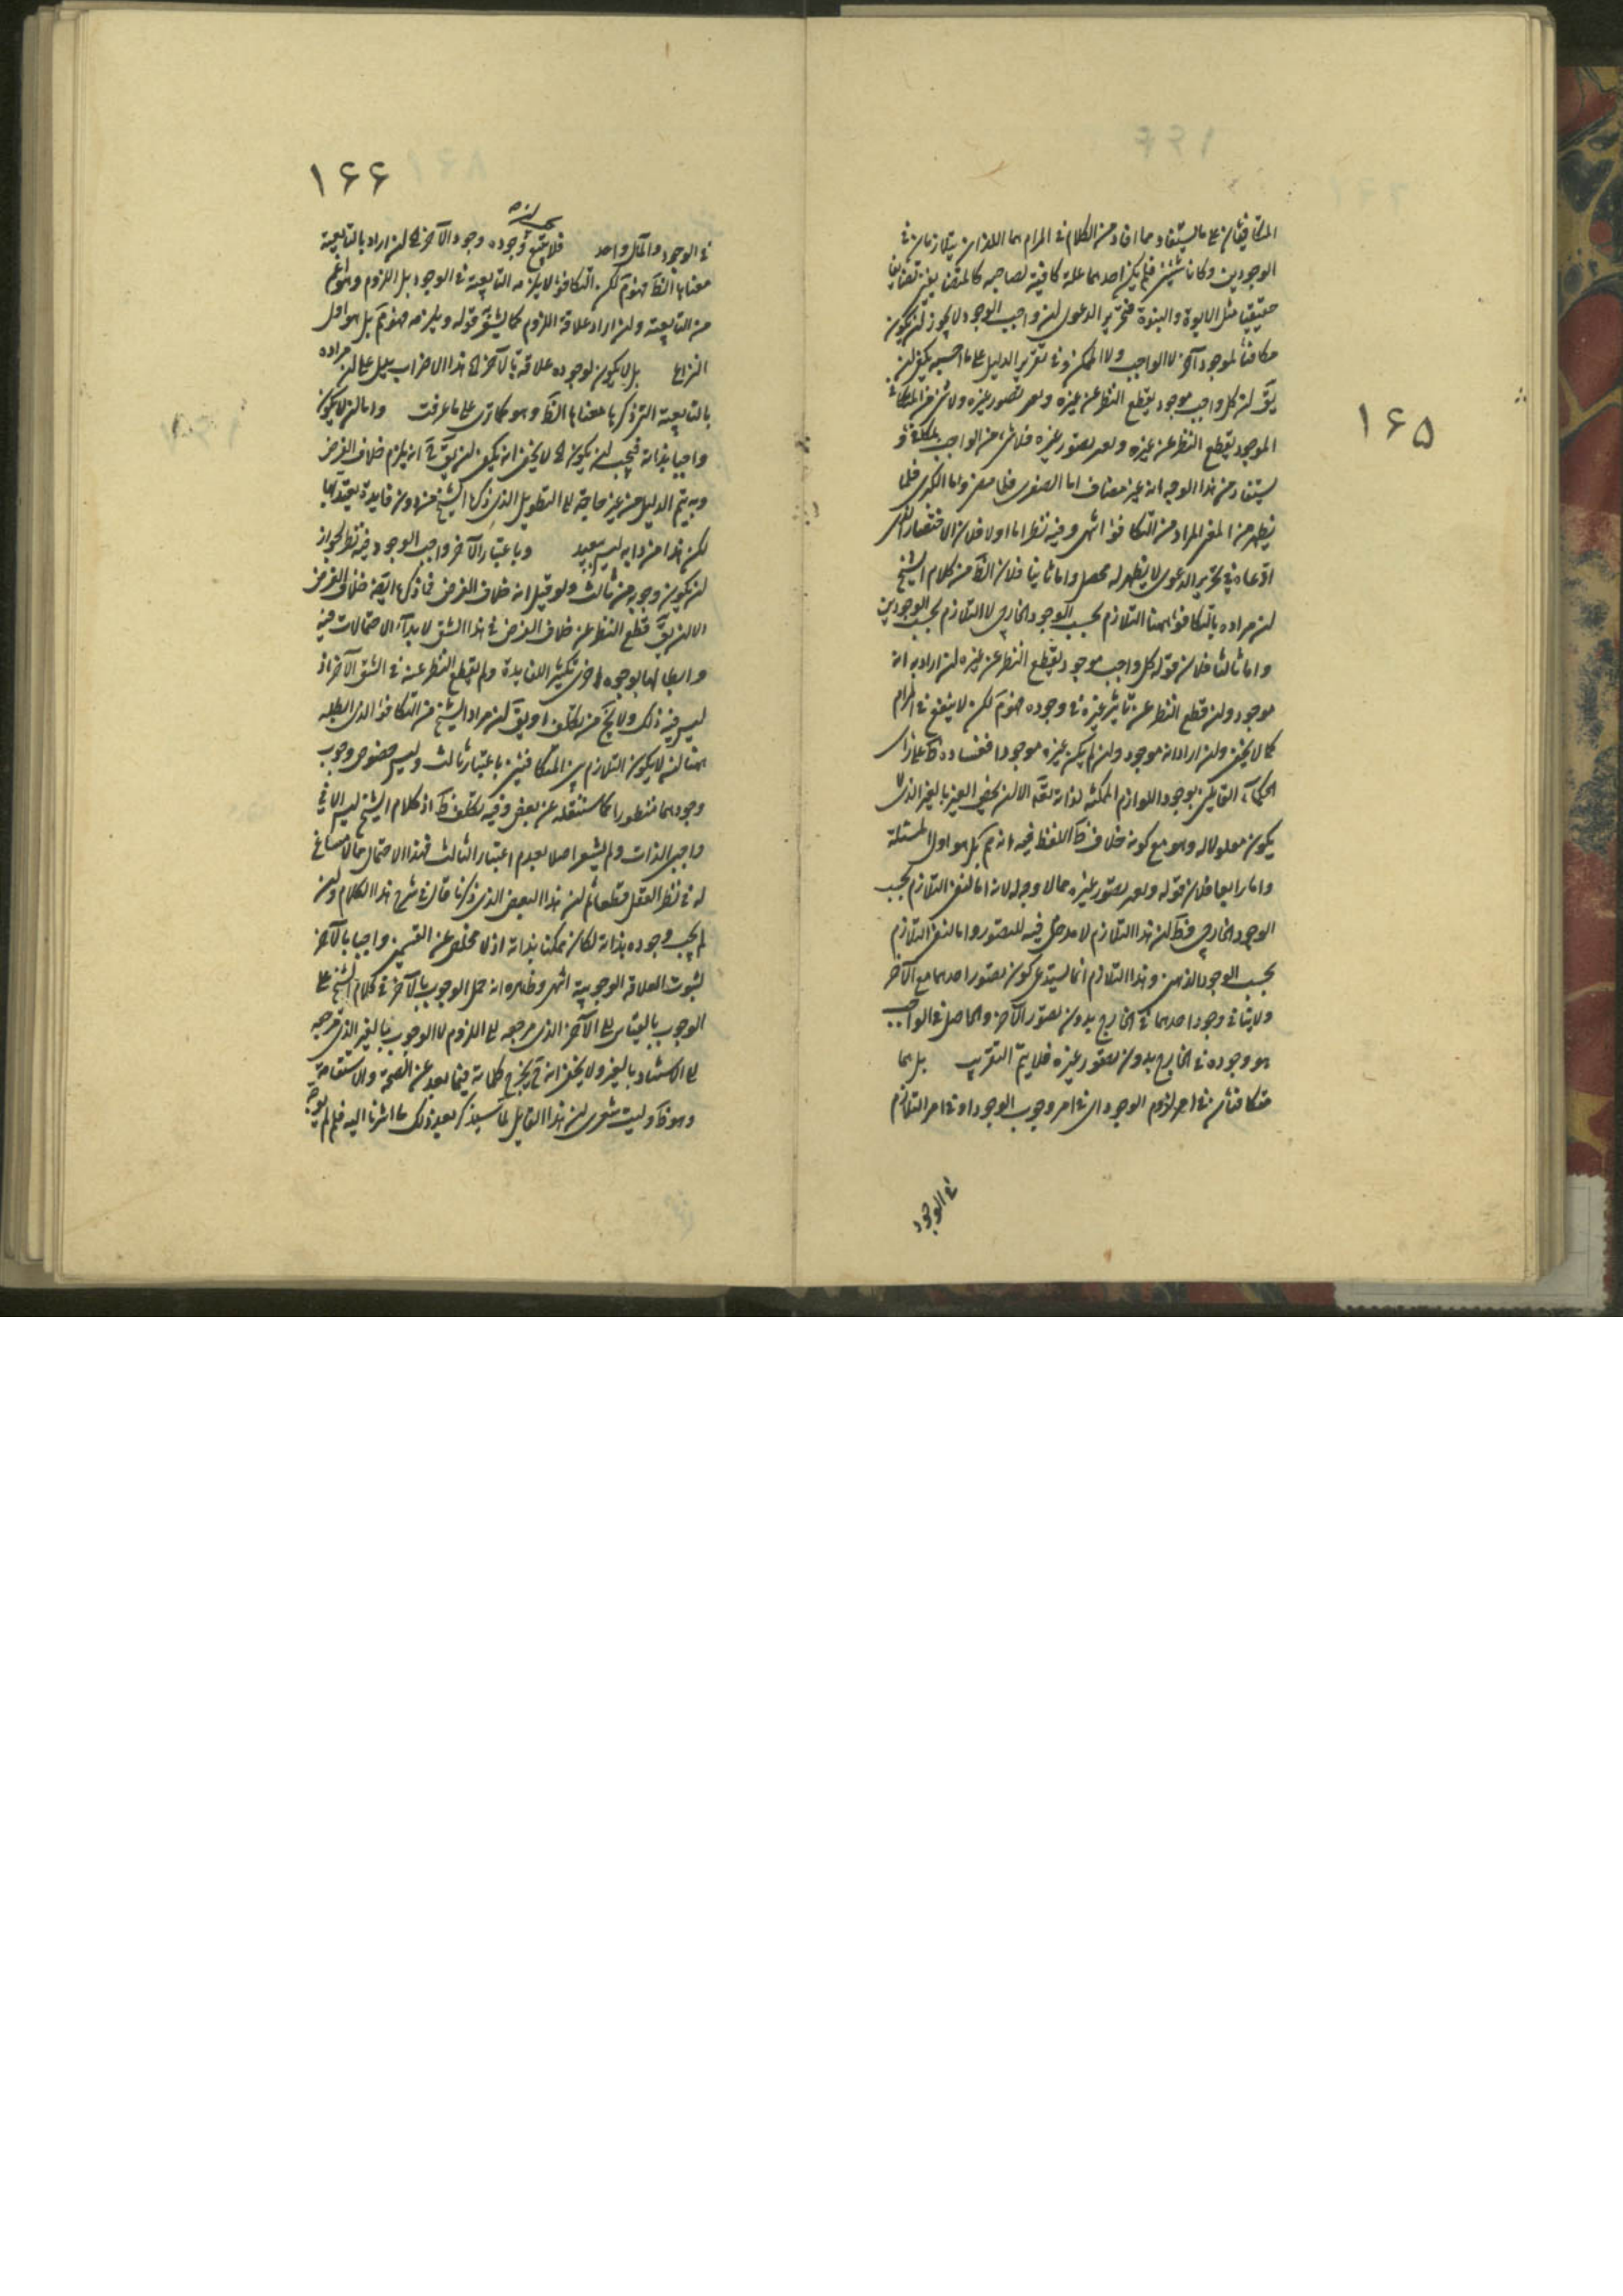 ١۶۵
المتكافيان على ما يستفاد مما افاد من الكلام فى المرام هما اللذان يتلازمان فى
الوجودين وكانا شيئين فلم يكن احدهما علة كافية لصاحبه كالمتضايفين تضايفا
حقيقيا مثل الابوة والبنوة فتحرير الدعوى ان واجب الوجود لا يجوز ان يكون
مكافئا لموجود آخر لا الواجب ولا الممكن وفى تقرير الدليل على ما احسبه يمكن ان
يق ان كل واجب موجود بقطع النظر عن غيره وبعد تصور غيره ولا شئ من المتكافئ
الموجود بقطع النظر عن غيره وبعد تصور غيره فلا شئ من الواجب بمتكافئ و
يستفاد من هذا الوجه انه غير مضاف اما الصغرى فلما مر واما الكبرى فلما
يظهر من المعنى المراد من التكافؤ انتهى وفيه نظر اما اولا فلان الاقتصار الذى
ادعاه فى تحرير الدعوى لا يظهر له محصل واما ثانيا فلان الظ من كلام الشيخ
ان مراده بالتكافؤ ههنا التلازم بحسب الوجود الخارجى لا التلازم بحسب الوجودين
واما ثالثا فلان قوله كل واجب موجود بقطع النظر عن غيره ان اراد به انه
موجود وان قطع النظر عن تاثير غيره فى وجوده فهو م لكن لا ينفع فى المرام
كما لا يخفى وان اراد انه موجود وان لم يكن غيره موجودا ففساده ظ على راى
الحكماء القايلين بوجود اللوازم الممكنة لذاته تعه الا ان يخص الغير بالغير الذى لا
يكون معلولا له وهو مع كونه خلاف ظ اللفظ فيه انه م بل هو اول المسئلة
واما رابعا فلان قوله وبعد تصور غيره مما لا وجه له لانه اما لنفى التلازم بحسب
الوجود الخارجى فظ ان هذا التلازم لا مدخل فيه للتصور واما لنفى التلازم
بحسب الوجود الذهنى وهذا التلازم انما يستدعى كون تصور احدهما مع الآخر
ولا ينافى وجود احدهما فى الخارج بدون تصور الآخر والحاصل فى الواجب
هو وجوده فى الخارج بدون تصور غيره فلا يتم التقريب بل هما
متكافئان فى امر لزوم الوجود اى فى امر وجوب الوجود او فى امر التلازم
فى الوجود
١۶۶
فى الوجود والمآل واحد فلا يتبع وجوده وجود الآخر الخ ان اراد بالتابعية
معناها الظ فهو م لكن التكافؤ لا يلزمه التابعية فى الوجود بل اللزوم وهو اعم
من التابعية وان اراد علاقة اللزوم كما يشعر قوله ويلزمه فهو م بل هو اول
النزاع بل لا يكون لوجوده علاقة بالآخر الخ هذا الاضراب يدل على ان مراده
بالتابعية التى ذكرها معناها الظ وهو كما ترى على ما عرفت واما ان لا يكون
واجبا بذاته فيجب ان يكون الخ لا يخفى انه يكفى ان يق ح انه يلزم خلاف الفرض
وبه يتم الدليل من غير حاجة الى التطويل الذى ذكره الشيخ من دون فايدة يعتد بها
لكن هذا من دابه ليس ببعيد وباعتبار الآخر واجب الوجود فيه نظر لجواز
ان يكون وجوبه من ثالث ولو قيل انه خلاف الفرض فما ذكره ايضا خلاف الفرض
الا ان يق قطع النظر عن خلاف الفرض فى هذا الشق لابداء الاحتمالات فيه
وابطالها بوجوه اخرى تكثيرا للفايدة ولم يقطع النظر عنه فى الشق الآخر اذ
ليس فيه ذلك ولا يخ من تكلف او يق ان مراد الشيخ من التكافؤ الذى ابطله
ههنا ان لا يكون التلازم بين المتكافئين باعتبار ثالث وليس خصوص وجوب
وجودهما منظورا كما سننقله عن بعض وفيه تكلف ظ اذ كلام الشيخ ليس الا فى
واجبى الذات ولم يشعر اصلا بعدم اعتبار الثالث فهذا الاحتمال مما لا مساغ
له فى نظر العقل قطعا ثم ان هذا البعض الذى ذكرنا قال فى شرح هذا الكلام وان
لم يجب وجوده بذاته لكان ممكنا بذاته اذ لا مخلص عن القسمين واجبا بالآخر
لثبوت العلاقة الوجوبية انتهى وظاهره انه حمل الوجوب بالآخر فى كلام الشيخ على
الوجوب بالقياس الى الآخر الذى مرجعه الى اللزوم لا الوجوب بالغير الذى مرجعه
الى الاستناد بالغير ولا يخفى انه ح يخرج كلماته فيما بعد عن الصحة والاستقامة
وهو ظ وليت شعرى ان هذا القايل مما سيذكر بعيد ذلك ما اشرنا اليه فلم لم يوجه